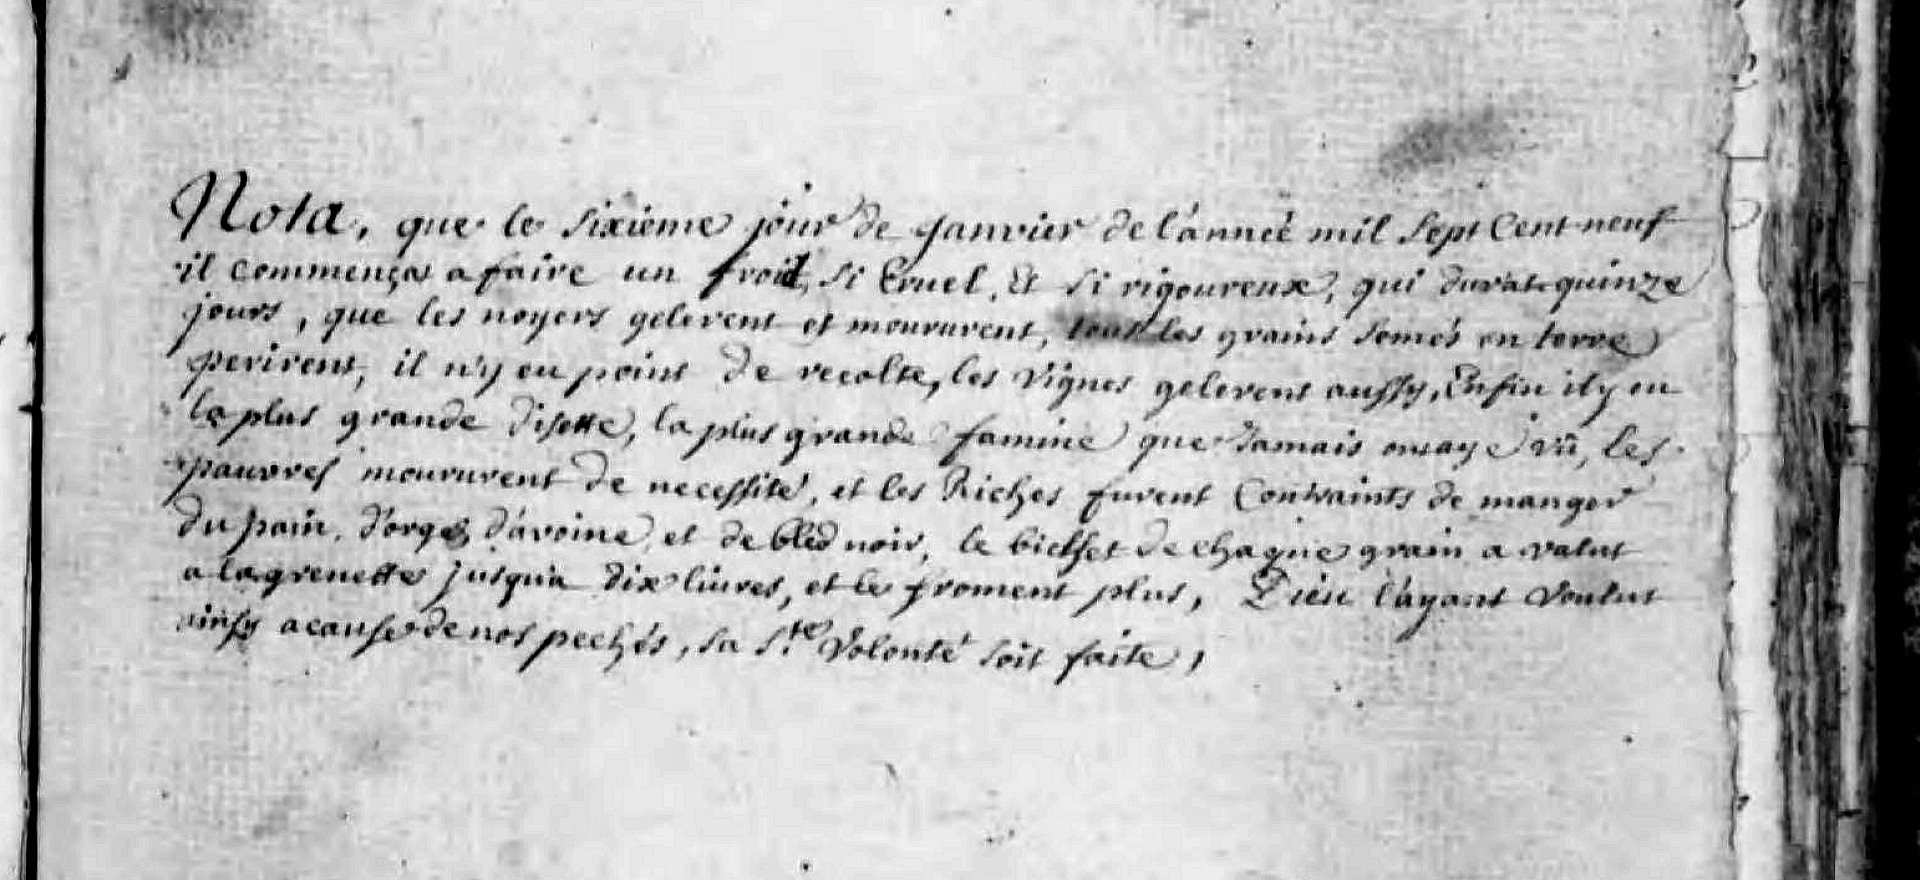 Nota, que le sixieme jour de janvier de l'année mil sept cent neuf
il commença a faire un froid, si cruel, et si rigoureux, qui durat quinze
jours, que les noyers gelerent et moururent, tous les grains semés en terre
perirent, il n'y eu point de recolte, les vignes gelerent aussy, Enfin il y eu
la plus grande disette, la plus grande famine que Jamais on aye vû, les
pauvres moururent de necessité, et les Riches furent Contraints de manger
du pain, d'orge, d'avoine, et de bled noir, le bichet de chaque grain a valut
a la grenette jusqu'a dix livres, et le froment plus, Dieu l'ayant voulut
ainsy a cause de nos pechés, sa Ste volonté soit faite,